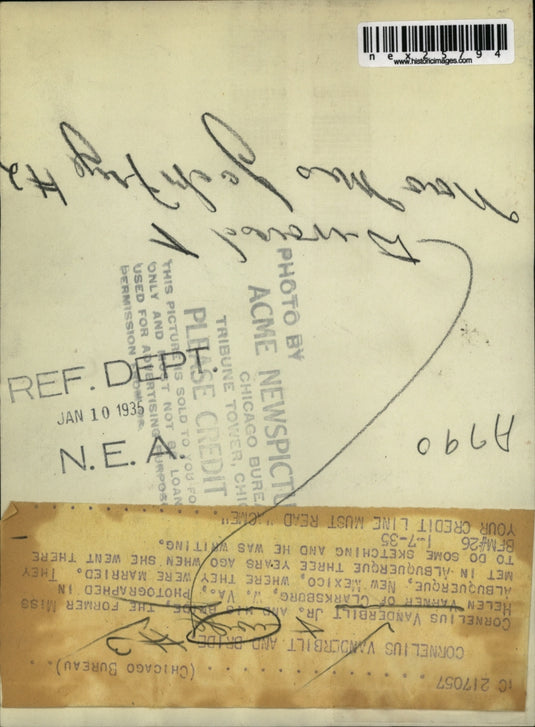 nex25794
www.historicimages.com
Now Mrs John Frye #2
Divorced
PHOTO BY
ACME NEWSPICTU
CHICAGO BURE
TRIBUNE TOWER, CHIC
PLEASE CREDIT
THIS PICTURE IS SOLD TO YOU FO
ONLY AND MUST NOT BE LOAN
USED FOR ADVERTISING PURPOS
PERMISSION
REF. DEPT.
JAN 10 1935
N.E.A.
A990
C 217057 (CHICAGO BUREAU)
CORNELIUS VANDERBILT AND BRIDE
#2
CORNELIUS VANDERBILT JR. AND HIS BRIDE, THE FORMER MISS
HELEN VARNER OF CLARKSBURG, W. VA., PHOTOGRAPHED IN
ALBUQUERQUE, NEW MEXICO, WHERE THEY WERE MARRIED. THEY
MET IN ALBUQUERQUE THREE YEARS AGO WHEN SHE WENT THERE
TO DO SOME SKETCHING AND HE WAS WRITING.
BFM#26 1-7-35
YOUR CREDIT LINE MUST READ "ACME"